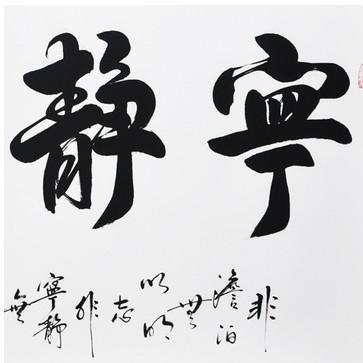 寧静
非澹泊無以明志非寧静無